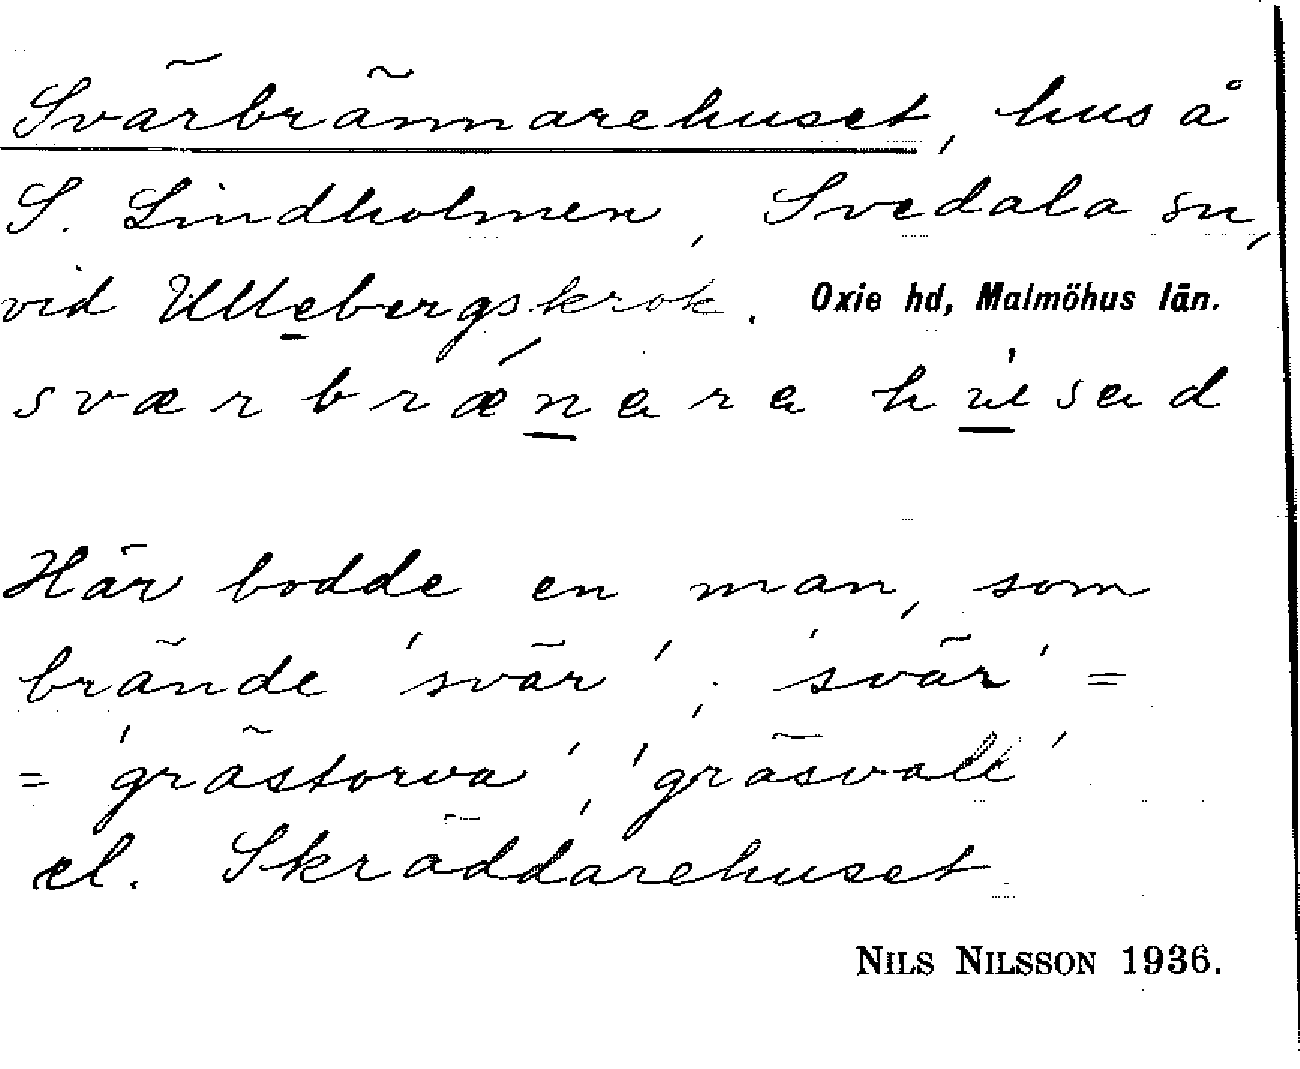 Svärbrännarehuset, hus å
S. Lindholmen, Svedala sn,
vid Ullebergskrok. Oxie hd, Malmöhus län.
sværbrænara húsad
Här bodde en man, som
brände 'svär'; 'svär' =
= 'grästorva', 'gräsvall'
el. Skräddarehuset
NILS NILSSON 1936.